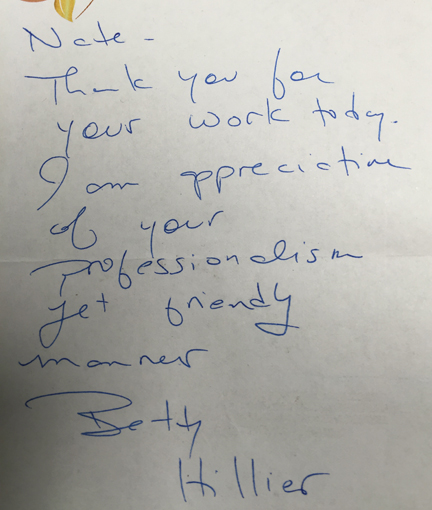 Nate -
Thank you for
your work today.
I am appreciative
of your
professionalism
yet friendly
manner
Betty
Hillier